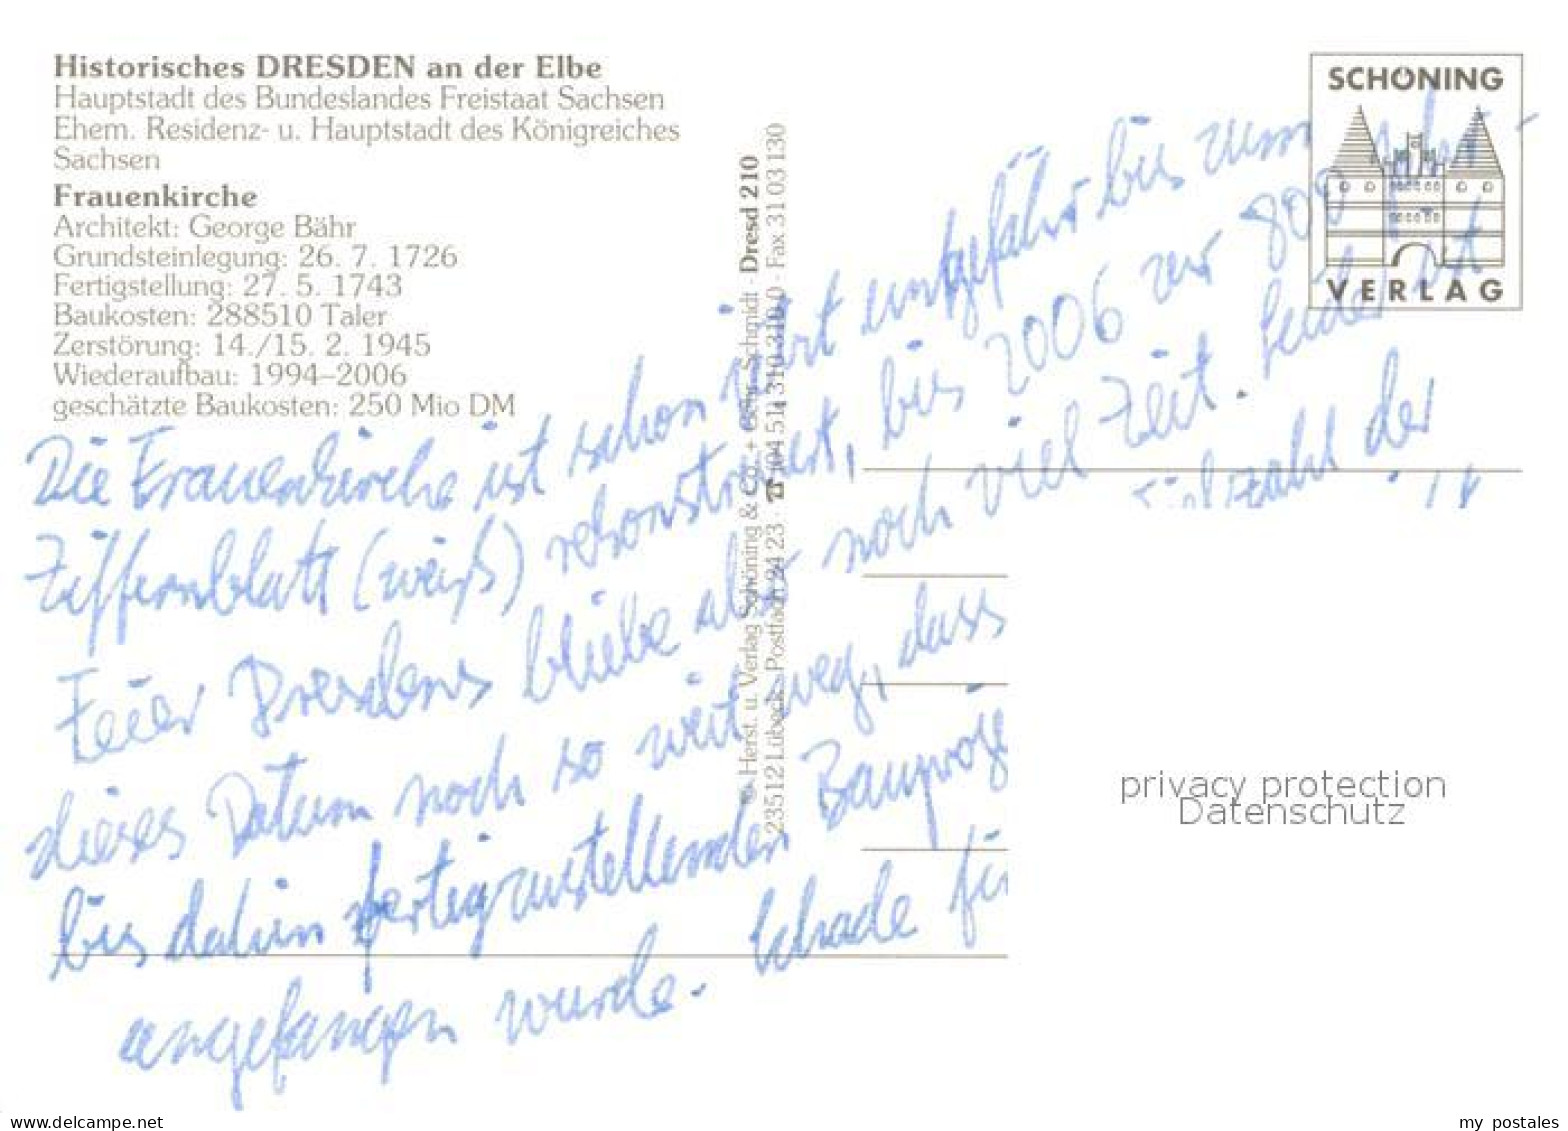 Historisches DRESDEN an der Elbe
Hauptstadt des Bundeslandes Freistaat Sachsen
Ehem. Residenz- u. Hauptstadt des Königreiches
Sachsen
Frauenkirche
Architekt: George Bähr
Grundsteinlegung: 26. 7. 1726
Fertigstellung: 27. 5. 1743
Baukosten: 288510 Taler
Zerstörung: 14./15. 2. 1945
Wiederaufbau: 1994–2006
geschätzte Baukosten: 250 Mio DM
© Herst. u. Verlag Schöning & Co. + Gebr. Schmidt · Dresd 210
23512 Lübeck · Postfach 24 23 · ☎ 04 51/ 310 310 · Fax 31 03 130
SCHÖNING
VERLAG
Die Frauenkirche ist schon ungefähr bis zum
Zifferblatt (weiß) rekonstruiert, bis 2006 zur 800
Feier Dresdens bliebe also noch viel Zeit. Leider ist
dieses Datum noch so weit weg, dass Vielzahl der
bis dahin fertigzustellenden Bauproje
angefangen wurde. Schade fü
privacy protection
Datenschutz
my_postales
www.delcampe.net